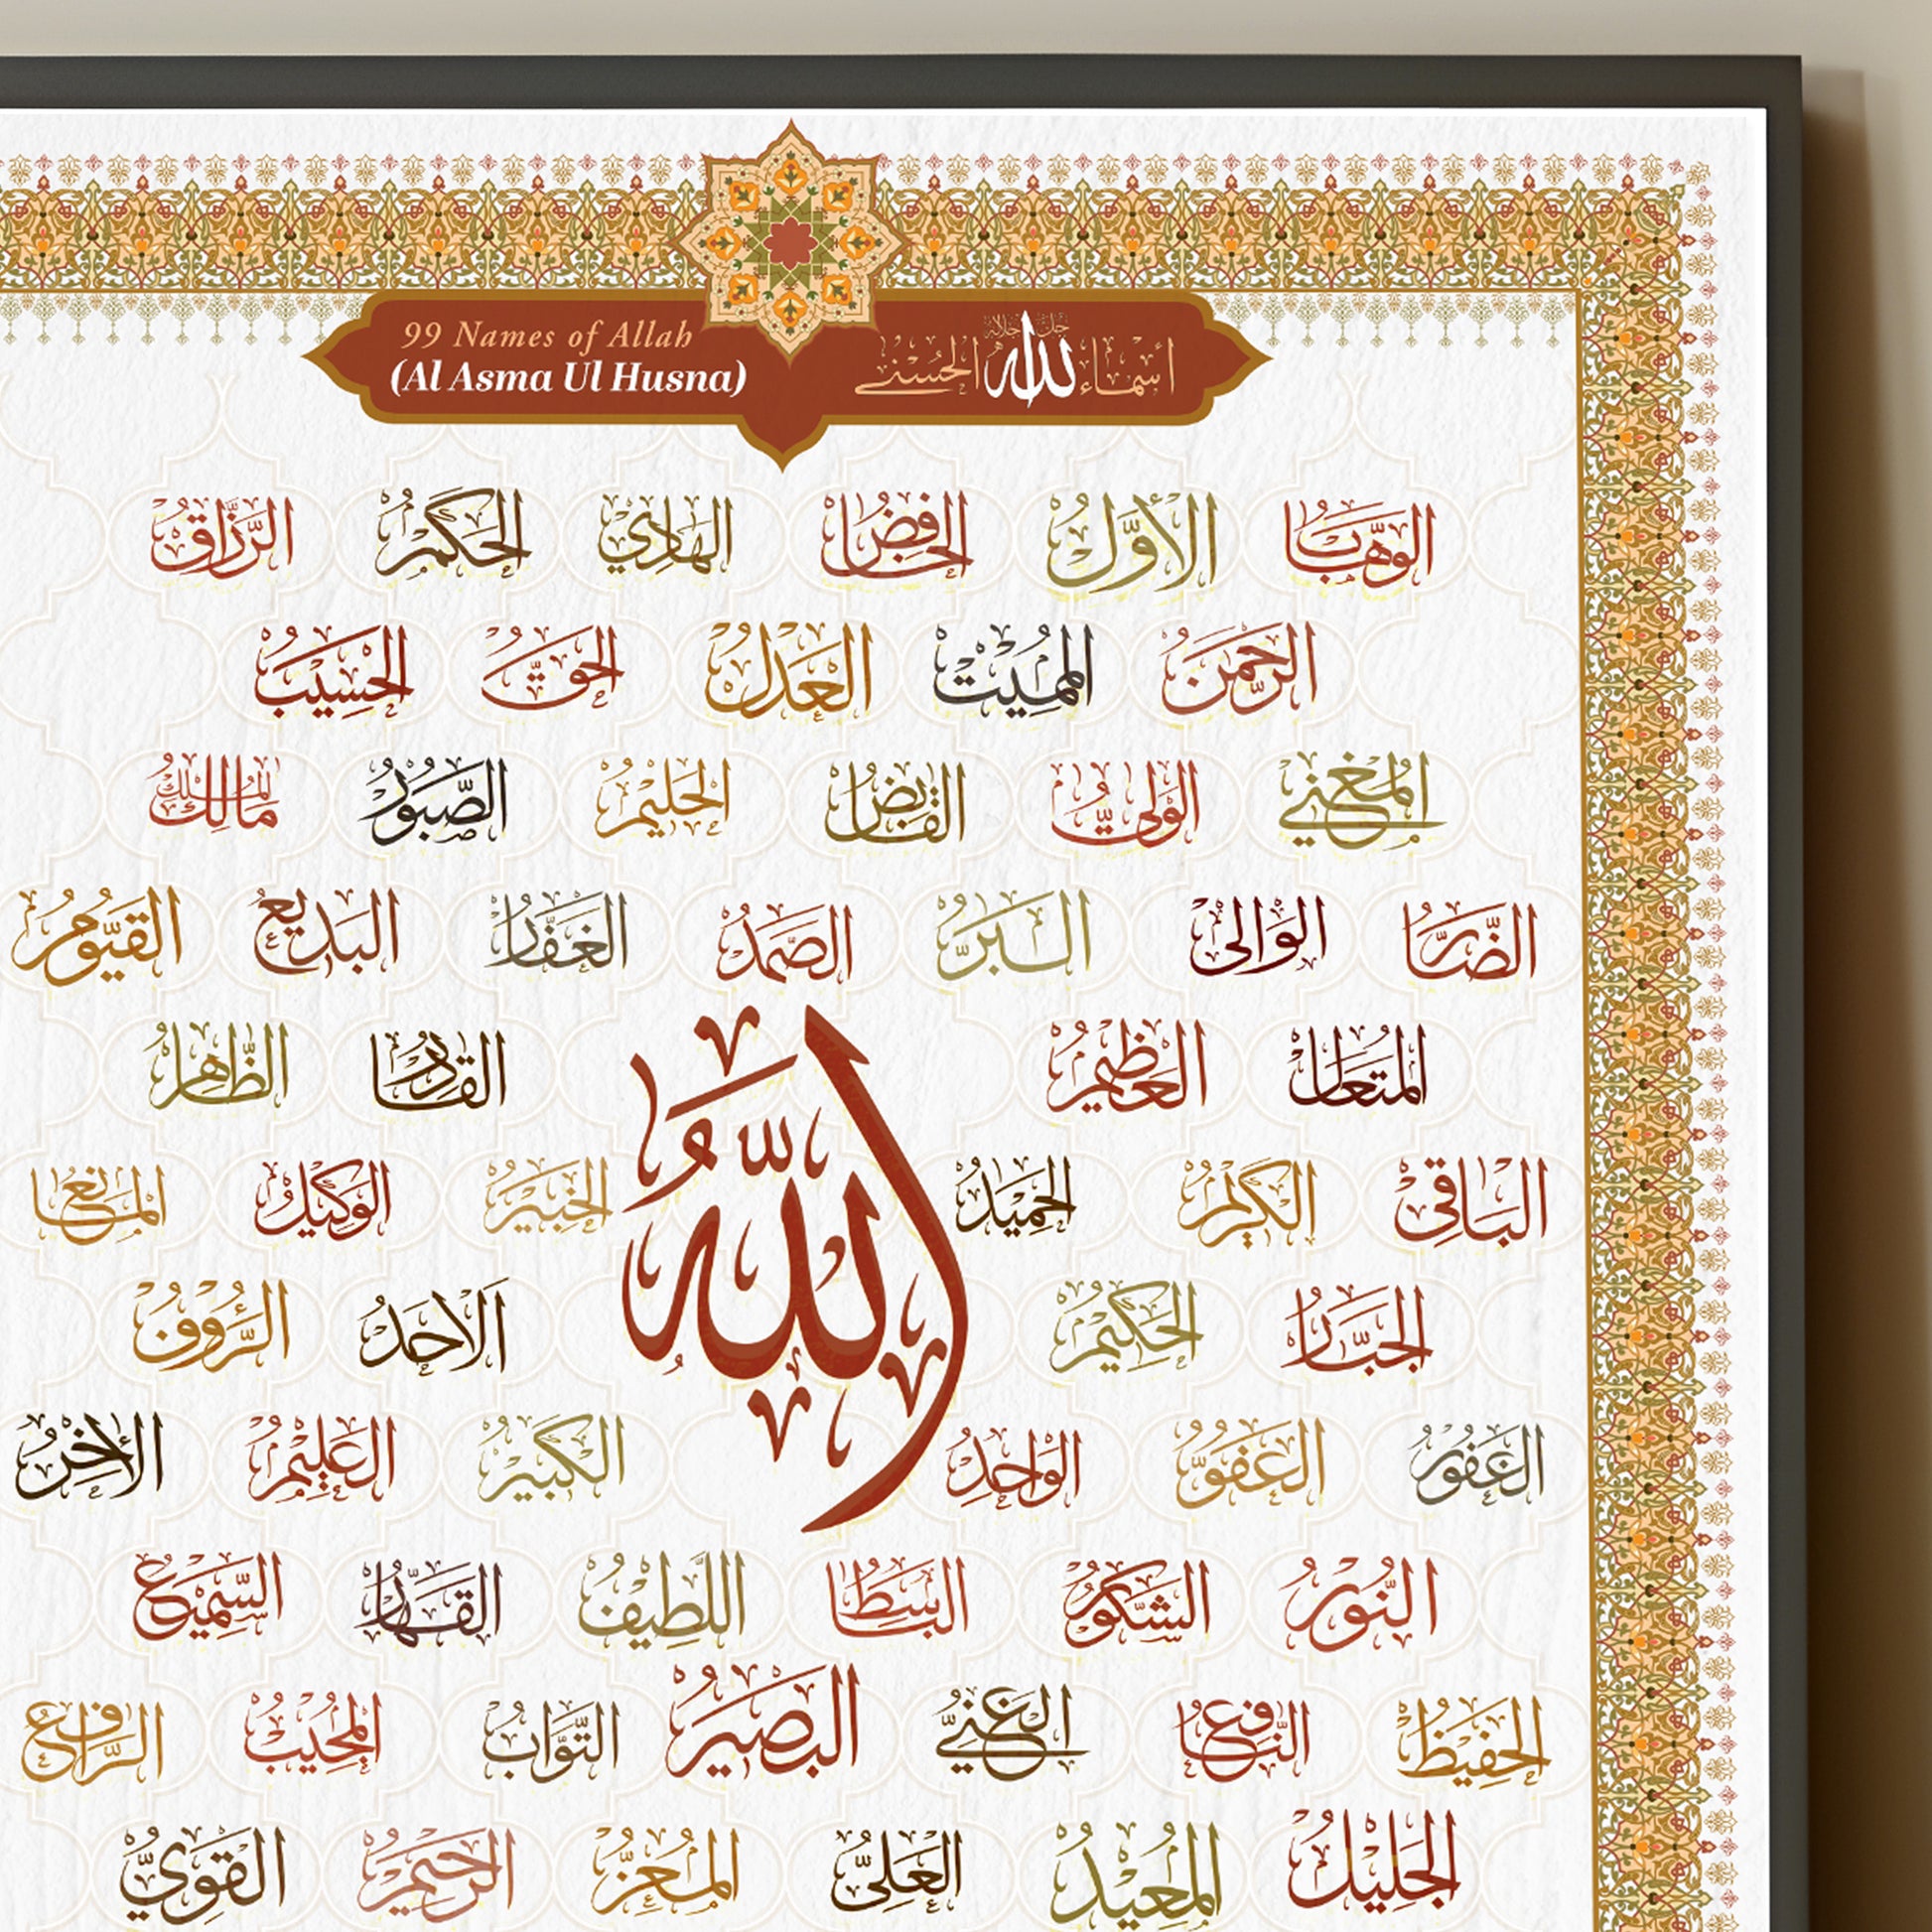 99 Names of Allah
(Al Asma Ul Husna)
أسماء الله جل جلاله الحسنى
الوهاب الأول الخافض الهادي الحكم الرزاق
الرحمن المميت العدل الحق الحسيب
المغني الولي القابض الحليم الصبور مالك الملك
الضار الوالي البر الصمد الغفار البديع القيوم
المتعال العظيم القادر الظاهر
الباقي الكريم الحميد الله الخبير الوكيل المانع
الجبار الحكيم الاحد الرؤوف
الغفور العفو الواحد الكبير العليم الأخر
النور الشكور الباسط اللطيف القهار السميع
الحفيظ النافع الغني البصير التواب المجيب الرافع
الجليل المعيد العلي المعز الرحيم القوي